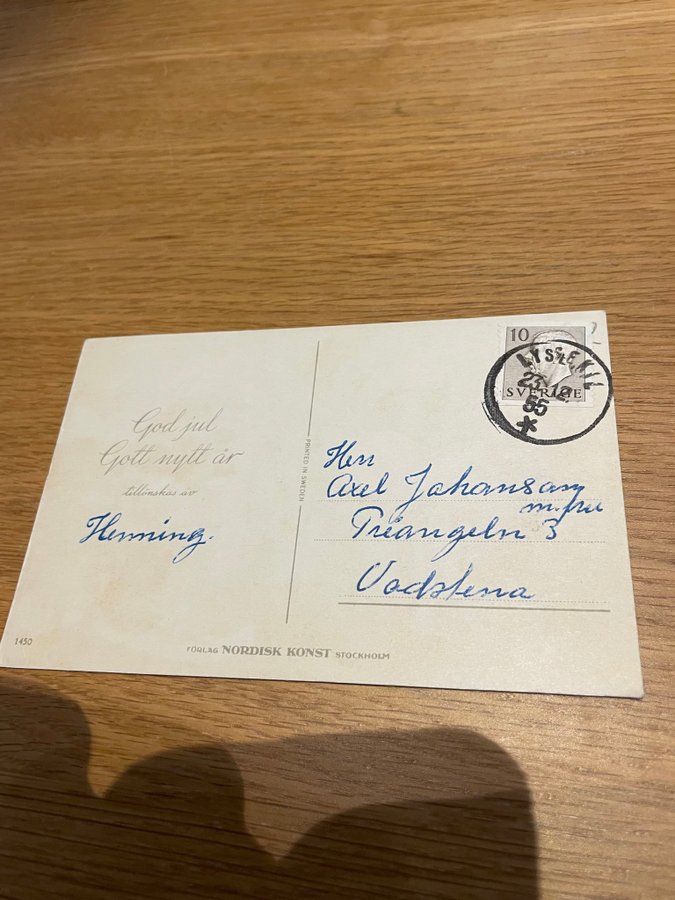 10
SVERIGE
LYSEKIL
23.12.
55
*
God jul
Gott nytt år
tillönskas av
Henning.
PRINTED IN SWEDEN
Herr
Axel Johansson
m. fru
Triangeln 3
Vadstena
1450
FÖRLAG NORDISK KONST STOCKHOLM